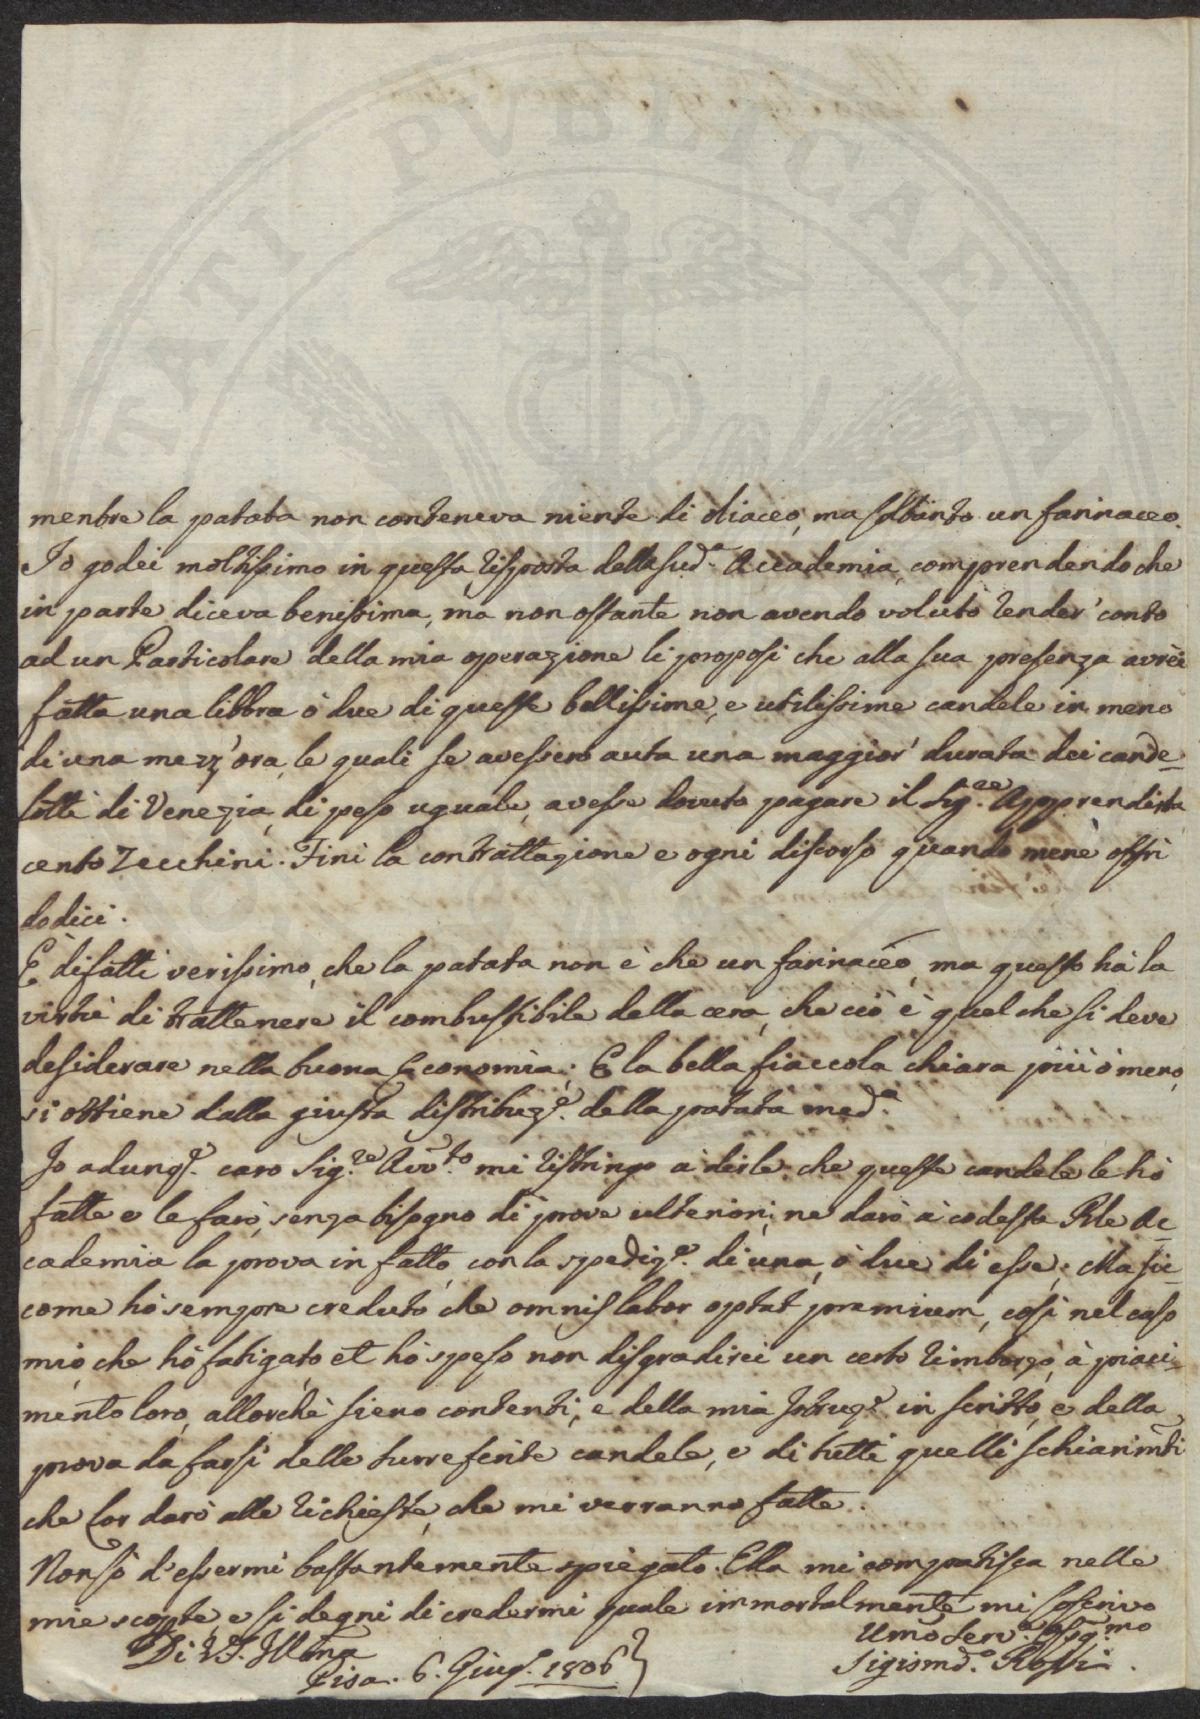 mentre la patata non conteneva niente di oliaceo, ma soltanto un farinaceo.
Io godei moltissimo in questa risposta della sud.ª Accademia, comprendendo che
in parte diceva benissimo, ma non ostante non avendo voluto render' conto
ad un Particolare della mia operazione li proposi che alla sua presenza avrèi
fatta una libbra ò due di queste bellissime, e utilissime candele in meno
di una mezz'ora, le quali se avessero auta una maggior' durata dei cande-
lotti di Venezia, di peso uguale, avesse dovuto pagare il Sig.re Apprendista
cento Zecchini. Finì la contrattazione e ogni discorso quando mene offrì
dodici.
E' difatti verissimo, che la patata non è che un farinacèo, ma questo hà la
virtù di trattenere il combustibile della cera, che ciò è quel che si deve
desiderare nella buona Economìa; E la bella fiaccola chiara più ò meno,
si ottiene dalla giusta distribuz.e della patata med.ª
Io adunq.e caro Sig.re Avv.to mi ristringo à dirle che queste candele le hò
fatte e le farò, senza bisogno di prove ulteriori; ne darò à codesta Rle Ac-
cademia la prova in fatto, con la spediz.e di una, ò due di esse; Ma sic-
come hò sempre creduto che omnis labor optat premium, così nel caso
mio, che hò fatigato, et hò speso non disgradirei un certo rimborzo, à piaci-
mento loro, allorchè sieno contenti, e della mia Istruz.e in scritto, e della
prova da farsi delle surreferite candele, e di tutti quelli schiarimti
che lor darò alle richieste, che mi verranno fatte.
Non sò d'essermi bastantemente spiegato. Ella mi compatisca nelle
mie scorte, e si degni di credermi quale immortalmente mi soscrivo
Di V.S. Illma
Umo Serv.e Ossq.mo
Pisa. 6. Giug.o 1806
Sigismd.o Rossi.
PVBLICAE